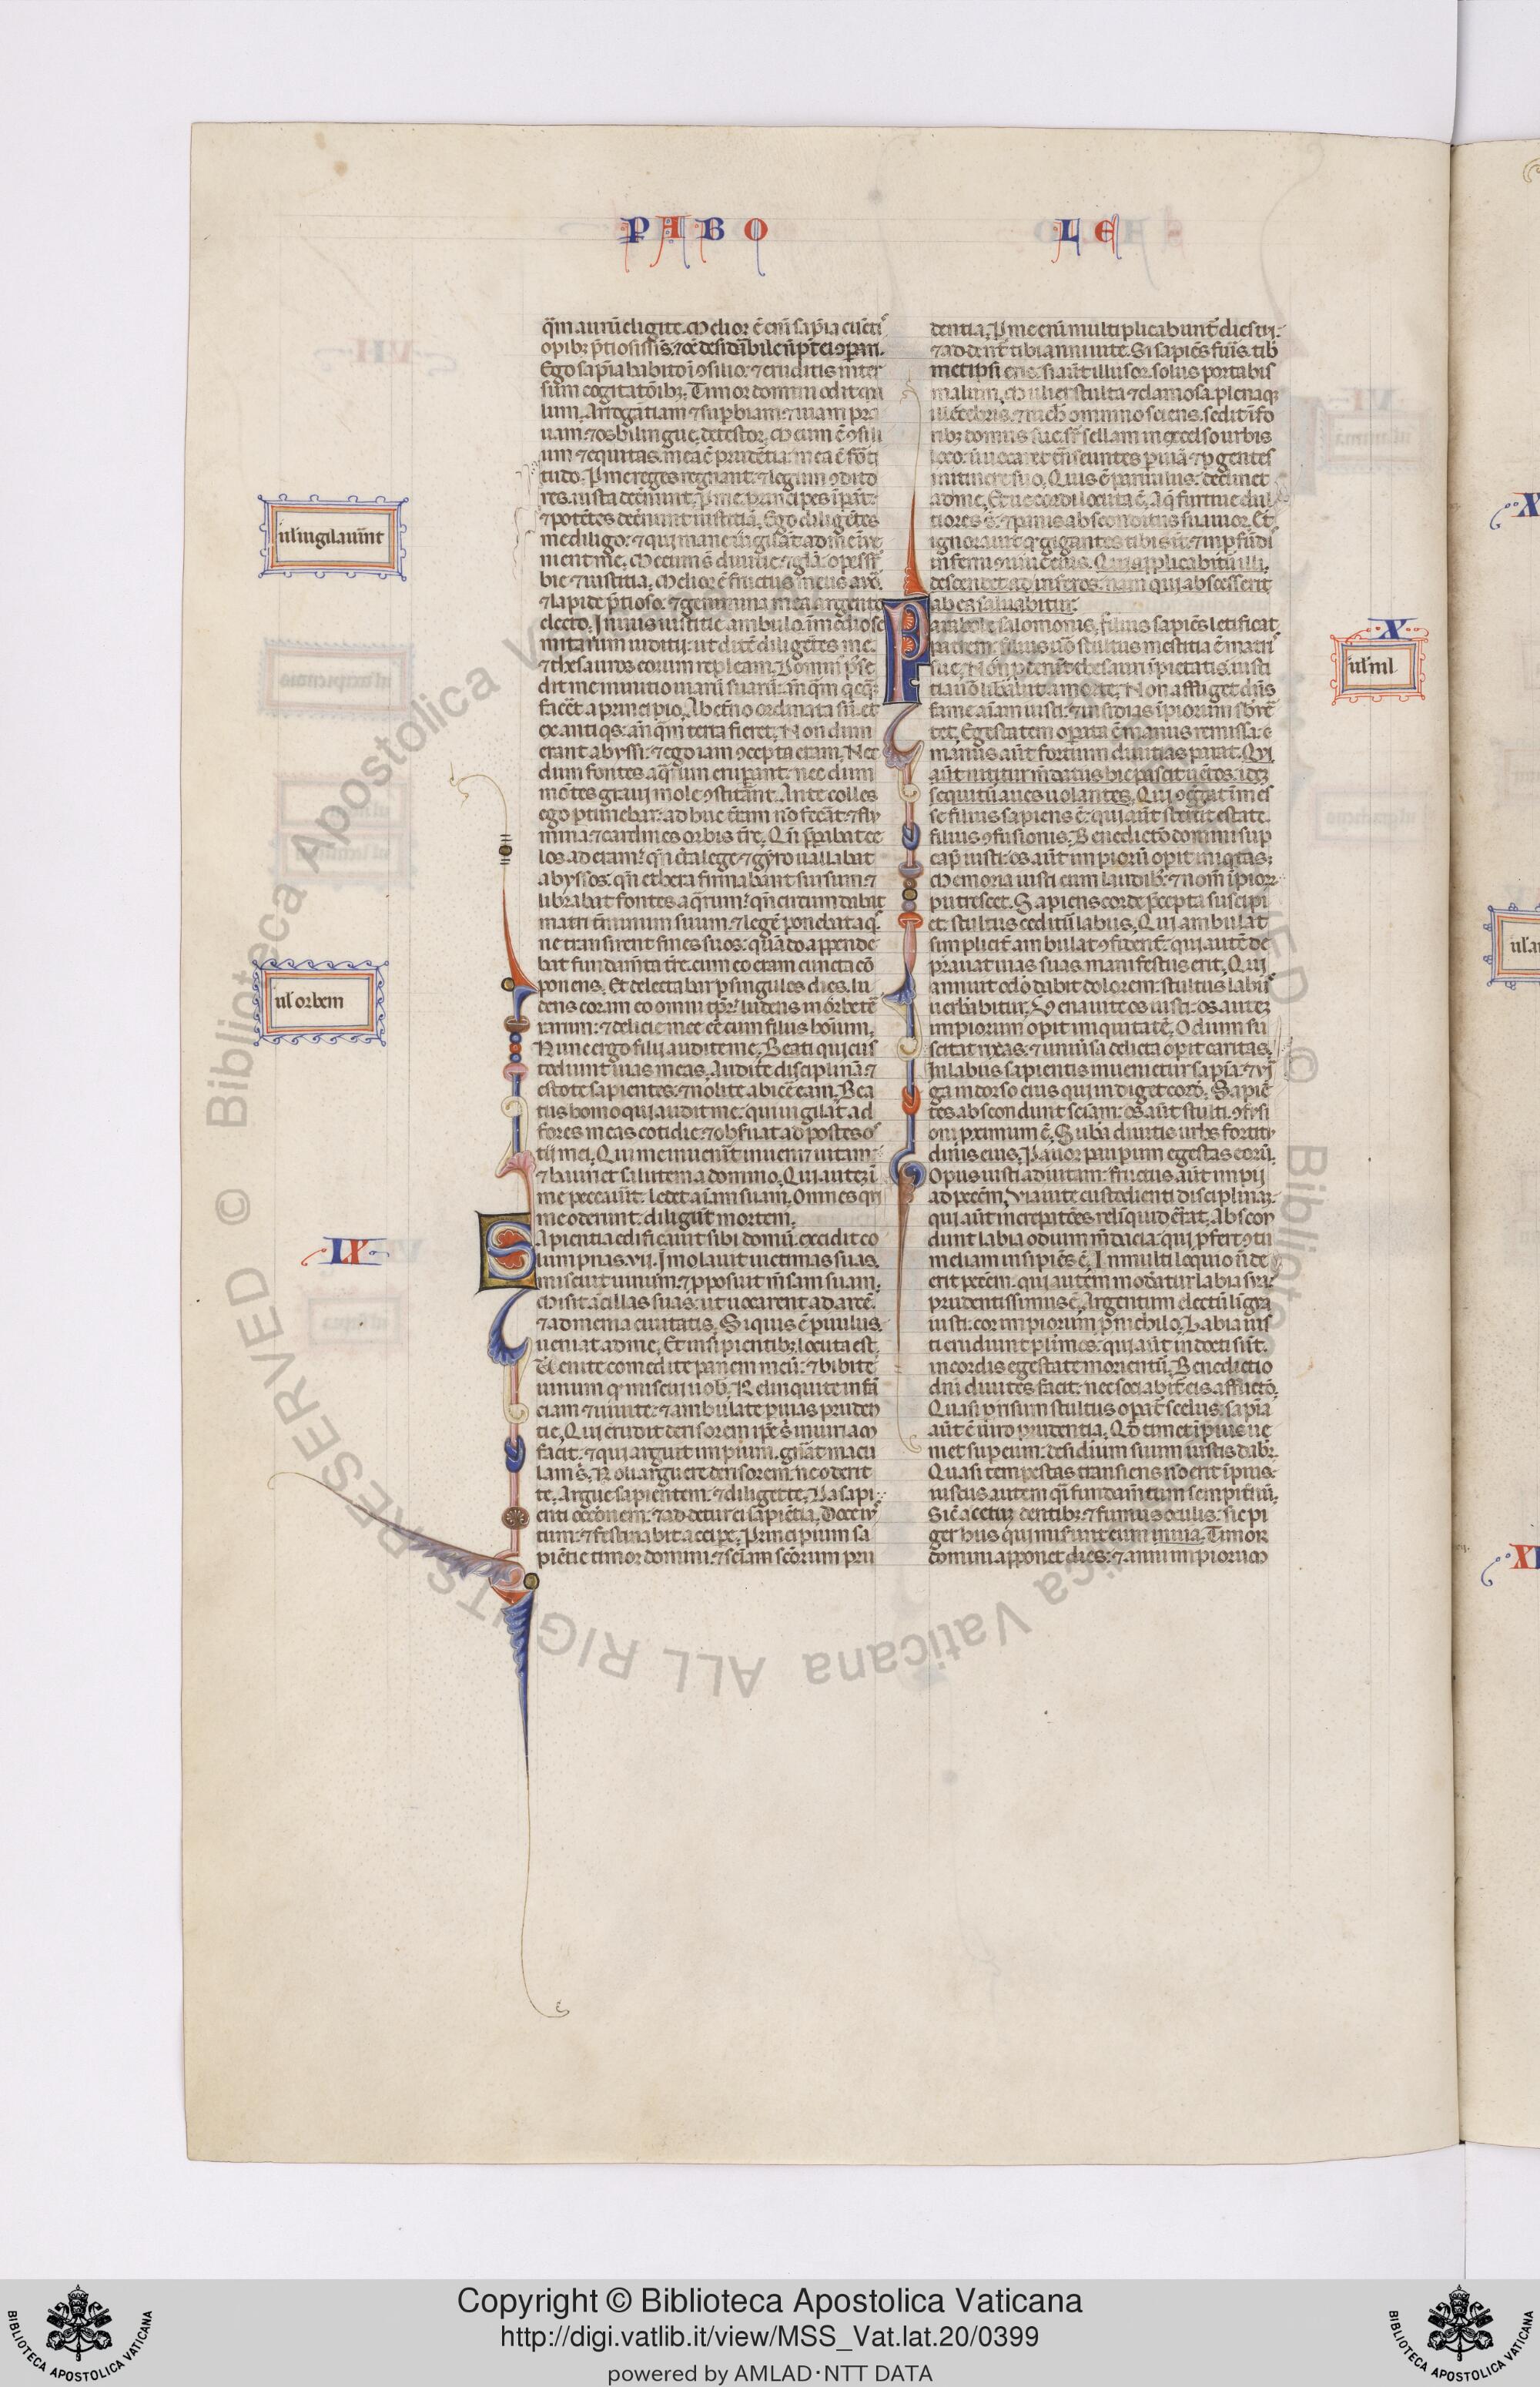 PABO
LE
q̄m aurū eligite. Melior ē enī sapīa cūctꝭ
opibꝫ p̄tiosissīs: ⁊ oē desidābile nō pōt ei ꝯparī.
Ego sapīa habito ī ꝯsilio: ⁊ eruditis inter
sum cogitatōibꝫ. Timor domini odit ma
lum. Arrogātiam ⁊ supbiam: ⁊ uiam pra
uam: ⁊ os bilingue detestor. Meum ē ꝯsili
um ⁊ equitas. mea ē prudētia: mea ē forti
tudo. P me reges regnant: ⁊ legum ꝯdito
res iusta decernunt. P me principes īpāt:
⁊ potētes decernunt iustitiā. Ego diligētes
me diligo: ⁊ qui mane uigilāt ad me īue
nient me. Mecum sˉ diuitie ⁊ glīa: opes suꝑ
bie ⁊ iustitia. Melior ē fructus meus auro
⁊ lapide p̄tioso: ⁊ genimina mea argento
electo. In uiis iustitie ambulo: ī medio se
mitarum iuditij: ut ditē diligētes me:
⁊ thesauros eorum repleam. Dominus posse
dit me in initio uiarū suarū: ān q̄m qcq̄ꝫ
facēt a principio. Ab etīno ordinata sū: et
ex antiqs: ān q̄m terra fieret. Nondum
erant abyssi: ⁊ ego iam ꝯcepta eram. Nec
dum fontes aq̄rum erupant: nec dum
mōtes graui mole ꝯstitāant. Ante colles
ego pturiebar: ad huc t̄ram nō fecāt: ⁊ flu
mina: ⁊ cardines orbis t̄re. Qn̄ p̄parabat ce
los aderam: qn̄ c̄ta lege: ⁊ gyro uallabat
abyssos: qn̄ ethera firmabant sursum: ⁊
librabat fontes aq̄rum: qn̄ circumdabat
mari t̄minum suum: ⁊ legē ponebat aqꝭ
ne transirent fines suos: quādo appende
bat fundam̄ta t̄re. cum eo eram cuncta cō
ponens. Et delectabar p singulos dies. lu
dens coram eo omni tp̄r: ludens ī orbe tē
rarum: ⁊ delicie mee eē cum filiis hoīum.
Nunc ergo filij audite me. Beati qui cus
todiunt uias meas. Audite disciplinā: ⁊
estote sapientes: ⁊ nolite abicē eam. Bea
tus homo qui audit me: qui uigilat ad
fores meas cotidie: ⁊ obsuat ad postes os
tij mei. Qui me inuenīt inueniet uitam:
⁊ hauriet salutem a domino. Qui autez ī
me peccauīt: ledet aīam suam. Omnes qui
me oderunt: diligūt mortem.
Sapientia edificauit sibi domū: excidit co
lumpnas .vij. Īmolauit uictimas suas.
miscuit uinum: ⁊ pposuit m̄sam suam.
Misit ācillas suas: ut uocarent ad arcē:
⁊ ad menia ciuitatis. Si quis ē pauulus.
ueniat ad me. Et insipientibꝫ locuta est.
Uenite comedite panem meū: ⁊ bibite
uinum qd miscui uob. Relinquite infā
ciam ⁊ uiuite: ⁊ ambulate p uias pruden
tie. Qui erudit derisorem ipē sˡ iniuriam
facit: ⁊ qui arguit impium. gnāt macu
lam sˡ. Noli arguere derisorem: ne oderit
te. Argue sapientem: ⁊ diliget te. Da sapi
enti occōnem: ⁊ addetur ei sapiētia. Doce ius
tum: ⁊ festinabit accipe. Principium sa
piētie timor domini: ⁊ scīam scōrum pru
dentia. P me enī multiplicabuntˉ dies tui:
⁊ addentˉ tibi anni uite. Si sapiēs fuīs. tibi
metipsi eris: si aūt illusor. solus portabis
malum. Mulier stulta ⁊ clamosa. plenaqꝫ
illecebris: ⁊ nichˡ omnino sciens. sedit ī fo
ribꝫ domus sue sr̄ sellam in excelso urbis
loco: ut uocaret trāseuntes p uiā: ⁊ pgentes
itinere suo. Quis ē paruulus: declinet
ad me. Et uecordi locuta ē. Aq̄ furtiue dul
tiores sˉ: ⁊ panis absconditus suauior. Et
ignorauit qd gigantes ibi sˉt: ⁊ in pfūdis
inferni ꝯuiue eius. Qui applicabitū illi.
descendet ad inferos: nam qui abscesserit
ab ea saluabitur.
Parabole salomonis. filius sapiēs letificat
patrem: filius uō stultus mestitia ē matrꝭ
sue. Nō pderūt thesauri īpietatis: iusti
tia uō libābit a morte. Non affliget dn̄s
fame aīam iusti: ⁊ insidias īpiorum sbˡuer
tet. Egestatem opata ē manus remissa:
manus aūt fortium diuitias parat. Qui
aūt nititur m̄datiis hic pascit uētos: idez
sequitū aues uolantes. Qui ꝯgregat ī mes
se filius sapiens ē: qui aūt stertit estate.
filius ꝯfusionis. Benedictō domini sup
cap iusti: os aūt impiorū opit iniqtas.
Memoria iusti cum laudibꝫ: ⁊ nom̄ īpiorum
putrescet. Sapiens corde p̄cepta suscipi
et: stultus ceditū labiis. Qui ambulat
simplicit̄ ambulat ꝯfidentˉ: qui autē de
prauat uias suas. manifestus erit. Qui
annuit oclō dabit dolorem: stultus labiis
uerbabitur. Vena uite os iusti: os autez
impiorum opit iniquitatē. Odium su
scitat rixas: ⁊ uniūsa delicta opit caritas.
In labiis sapientis inuenietur sapīa: ⁊ uir
ga in dorso eius qui indiget corde. Sapiē
tes abscondunt scīam: os aūt stulti. ꝯfusi
oni pximum ē. Suba diuitis urbs fortitu
dinis eius. Pauor paupum egestas eorū.
Opus iusti ad uitam: fructus aūt impij
ad peccm̄. Via uite custodienti disciplinaꝫ:
qui aūt increpatōes relīquid errat. Abscon
dunt labia odium m̄dacia: qui pfert ꝯtu
meliam insipiēs ē. In multiloquio nō de
erit peccm̄: qui autem modātur labia sua
prudentissimus ē. Argentum electū līgua
iusti: cor impiorum p nichilo. Labia ius
ti erudiunt plimos: qui aūt indocti sūt.
in cordis egestate morientū. Benedictio
dn̄i diuites facit: nec sociabitˉ eis afflictō.
Quasi p risum stultus opatˉ scelus: sapīa
aūt ē uiro prudentia. Qd timet īpius ue
niet sup eum: desidium suum iustis dabꝫ.
Quasi tempestas transiens nō erit īpius:
iustus autem qˡi fundam̄tum sempitnū.
Sic acetuꝫ dentibꝫ: ⁊ fumus oculis: sic pi
ger hiis qui miserunt eum in uia. Timor
domini apponet dies: ⁊ anni impiorum
uˡ īuigilauīnt
uˡ orbem
IX
X
uˡ nˡ
Copyright © Biblioteca Apostolica Vaticana
http://digi.vatlib.it/view/MSS_Vat.lat.20/0399
powered by AMLAD·NTT DATA
BIBLIOTECA APOSTOLICA VATICANA
BIBLIOTECA APOSTOLICA VATICANA